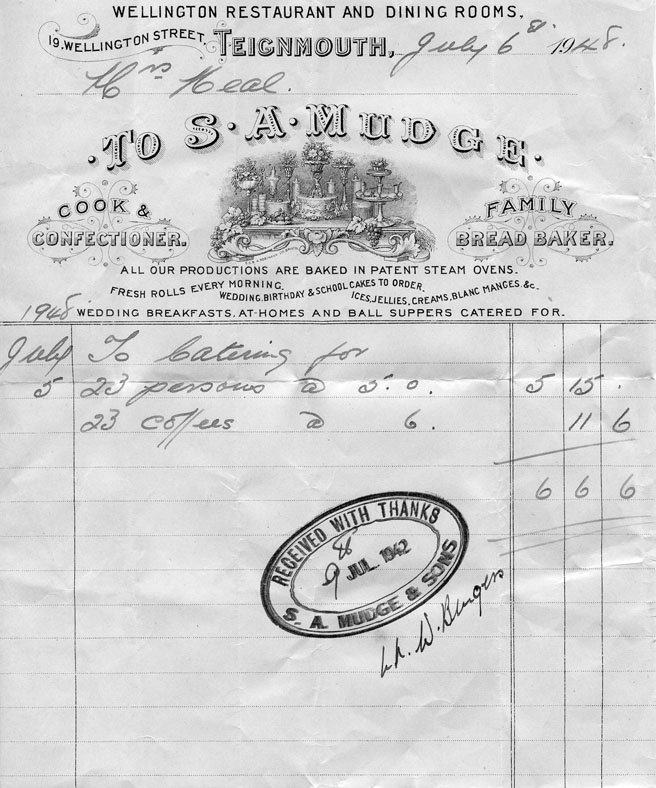 WELLINGTON RESTAURANT AND DINING ROOMS,
19, WELLINGTON STREET, TEIGNMOUTH, July 6th 1948.
Mrs Heal.
· TO S. A. MUDGE ·
COOK & CONFECTIONER.
FAMILY BREAD BAKER.
ALL OUR PRODUCTIONS ARE BAKED IN PATENT STEAM OVENS.
FRESH ROLLS EVERY MORNING. WEDDING, BIRTHDAY & SCHOOL CAKES TO ORDER. ICES, JELLIES, CREAMS, BLANC MANGES, &c.
WEDDING BREAKFASTS, AT-HOMES AND BALL SUPPERS CATERED FOR.
1948
July To Catering for
5 23 persons @ 5. 0. 5 15 .
23 coffees @ 6. 11 6
6 6 6
RECEIVED WITH THANKS
9 JUL 1942
8
S. A. MUDGE & SONS
W. Burgess